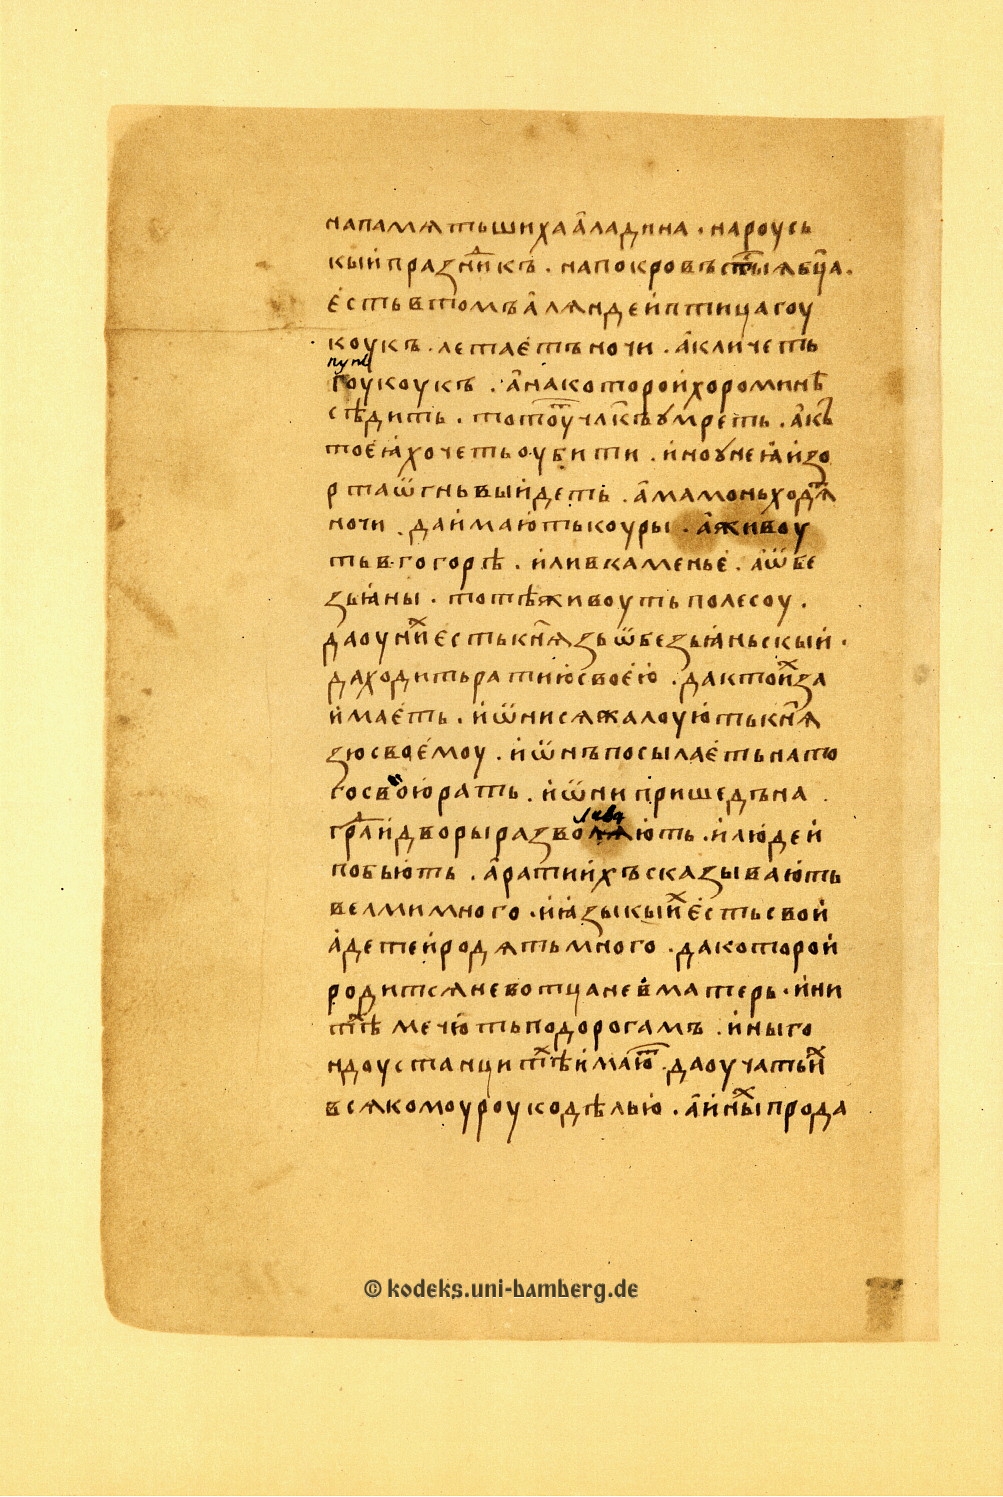 напамѧтьшихаа̑ладина · нароусь
кый празⷣни̑къ · напокровъст҃ыѧбц҃а ·
е́стьвтомъа̑лѧндеи̇птицагоу
коукъ · летае́тъночи · а̑кличеть
пупъ
гоукоукъ · а̑накоторои̇хороминѣ̑
сѣдить · тотоу҃тчл҃къꙋмреть · а̑къ
тое́ꙗ̇хочетьоубити · и̇ноꙋнеꙗ̇и̇зо
ртаѿгньвыи̇деть · а̑мамоньходѧ҃т
ночи · даи̇маю́тькоуры · а̑живоу
тьвгогорѣ · и̇ливкаменье́ · а̇ѡ̈бе
зьꙗ̇ны · тотѣживоутьполесоу ·
даоунⷯи̑е́стькн҃ѧзьѡ̈безьꙗ̇ньскыи̇ ·
даходитьратию̇своею̇ · дактоиⷯза
и̇мае́ть · и̇ѡ̈нисѧжалоую́тькн҃ѧ
зюсвое́моу · и̇ѡ̈нъпосылае́тьнато
госвою̇рать · и̇ѡ̈ни пришедъна
лева
грⷣаи̇дворыразволѧю́ть · и̇лю́деи̇
побью́ть · а̑ратии̇хъсказываю́ть
велмимного · и̇ꙗ̇зыкыи̇ⷯе́стьсвои̇
а̇детеи̇родѧтьмного · дакоторои̇
родитсѧневотцаневматерь · и̇ни
тѣⷯ мечю́тьподорогамъ · и̇ныго
ндоустанцитѣⷯи̇маю̑т · даоучатьи̇ⷯ
всѧкомоуроукодѣлью̇ · а̑и̇ныⷯпрода
© kodeks.uni-bamberg.de